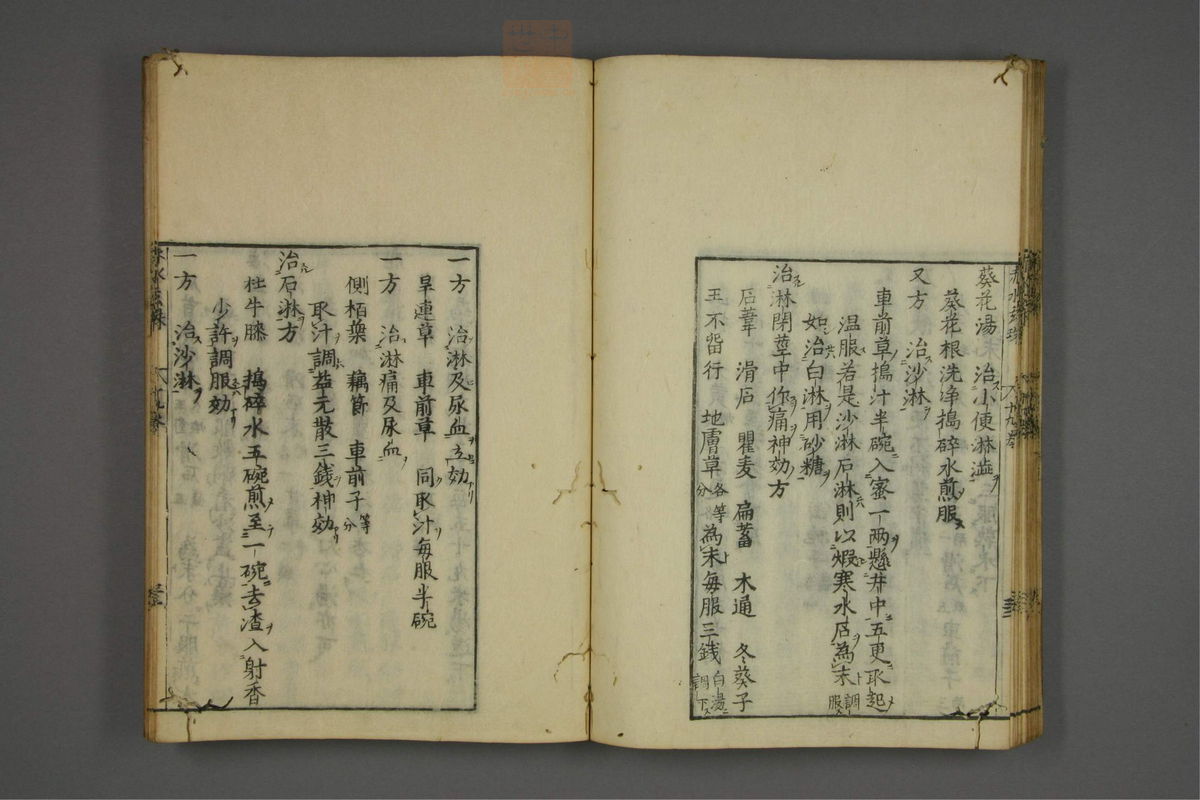 葵花湯 治小便淋澁
葵花根洗浄搗碎水煎服
又方 治沙淋
車前草搗汁半碗入蜜一两懸井中五更取起
温服若是沙淋石淋則以煆寒水石為末調服
如治白淋用砂糖
治淋閉莖中作痛神効方
石葦 滑石 瞿麦 扁蓄 木通 冬葵子
王不畄行 地膚草各等分為末毎服三銭白湯調下
一方 治淋及尿血立効
旱連草 車前草 同取汁毎服半碗
一方 治淋痛及尿血
側栢葉 藕節 車前子等分
取汁調益元散三銭神効
治石淋方
牡牛膝 搗碎水五碗煎至一碗去渣入射香
少許調服効
一方 治沙淋